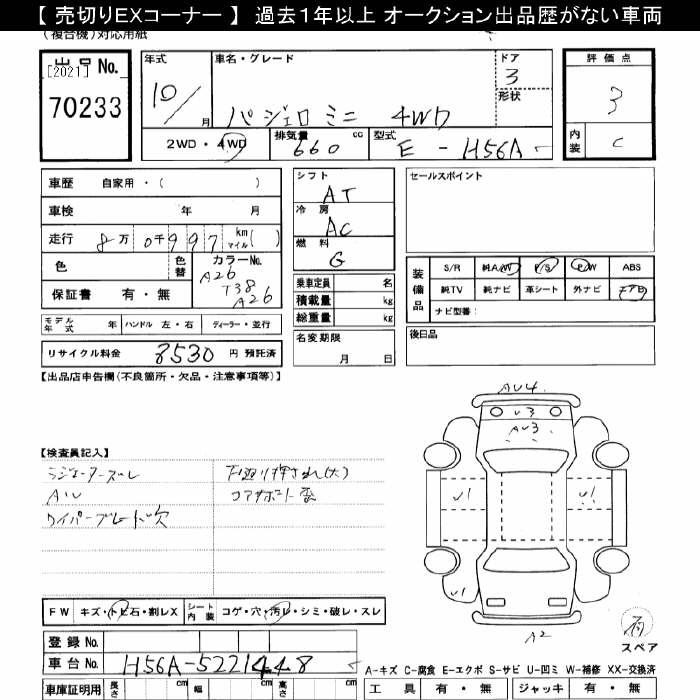 【 売切りEXコーナー 】 過去1年以上 オークション出品歴がない車両
(複合機)対応用紙
出品No.
[2021]
70233
年式
10/
月
車名・グレード
パジェロミニ 4WD
ドア
3
形状
評価点
3
内装
C
2WD・4WD
排気量 cc
660
型式
E - H56A
車歴 自家用・( )
車検 年 月
走行 8万 0千997 km マイル( )
色
色替
カラーNo.
A26
T38
A26
保証書 有・無
モデル年式 年
ハンドル 左・右
ディーラー・並行
リサイクル料金 8530 円 預託済
シフト
AT
冷房
AC
燃料
G
乗車定員 名
積載量 kg
総重量 kg
名変期限
月 日
セールスポイント
装備品
S/R 純A/W P/S P/W ABS
純TV 純ナビ 革シート 外ナビ エアB
ナビ型番:
後日品
【出品店申告欄(不良箇所・欠品・注意事項等)】
【検査員記入】
ラジエーターズレ
下廻り押され(大)
AU
コアサポート歪
ワイパーブレード欠
FW キズ・トビ石・割レX
シート内装 コゲ・穴・汚レ・シミ・破レ・スレ
登録No.
車台No. H56A-5221448
車庫証明用 長さ cm 幅 cm 高さ cm
AU4
U3
AU3
U1
U1
U1
A2
有
スペア
A-キズ C-腐食 E-エクボ S-サビ U-凹ミ W-補修 XX-交換済
工具 有・無 ジャッキ 有・無